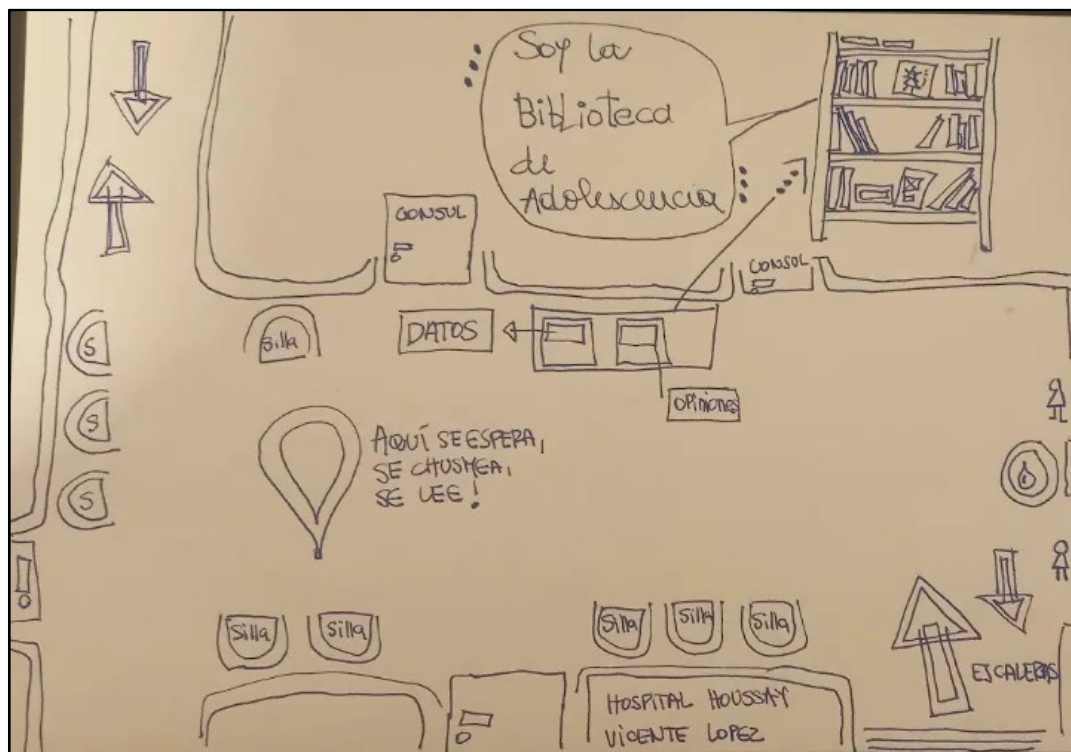 Soy la
Biblioteca
de
Adolescencia
CONSUL
CONSUL
DATOS
Silla
S
S
S
OPiniones
AQUÍ SE ESPERA,
SE CHUSMEA,
SE LEE!
Silla
Silla
Silla
Silla
Silla
ESCALERAS
HOSPITAL HOUSSAY
VICENTE LOPEZ